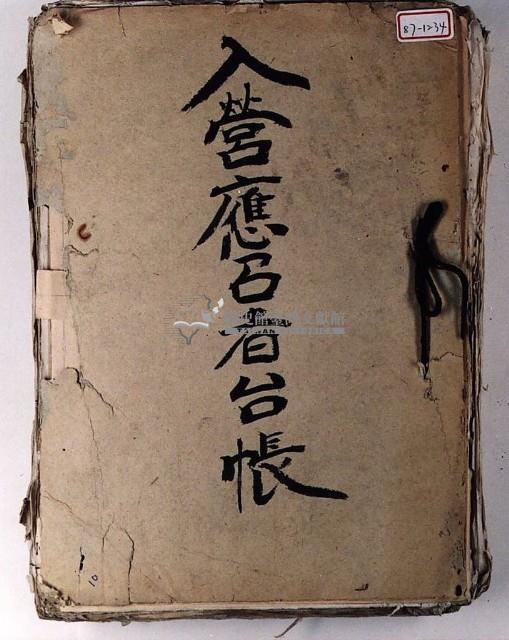 入營應召者台帳
87-1234
10